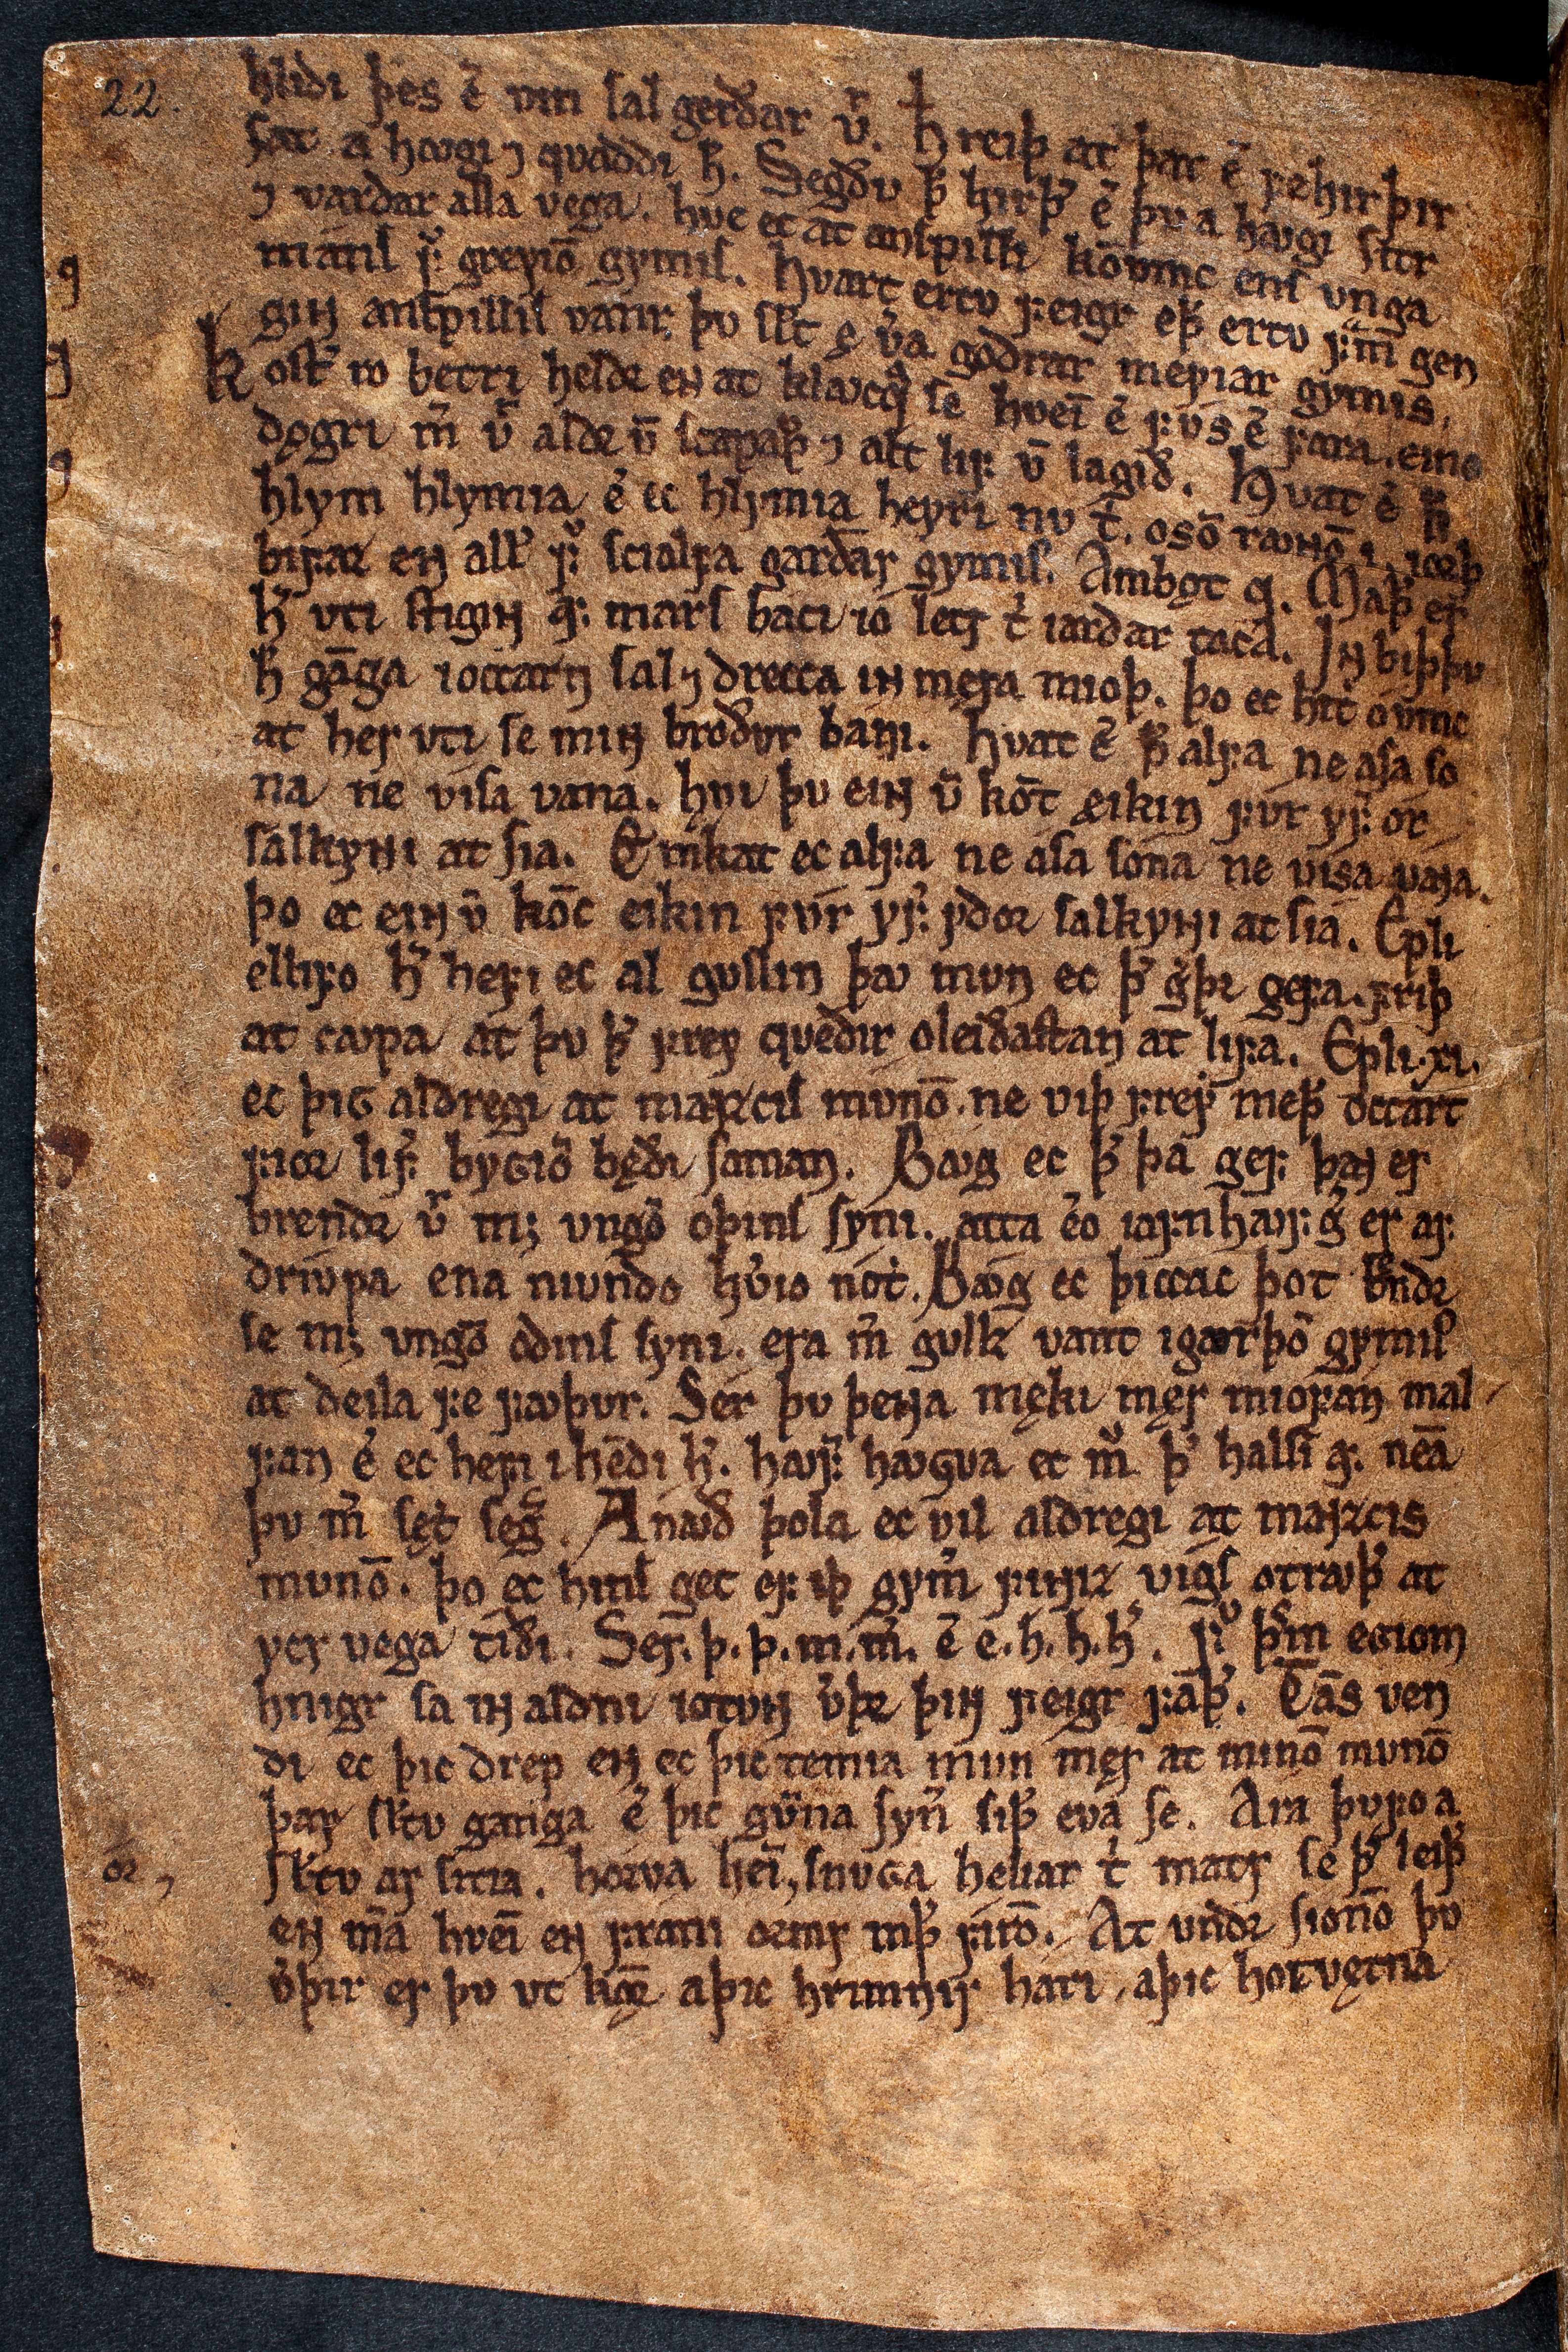 22.
hlidi þes ē vm sal gerðar v͛. h̄ reiþ at þar ē fehirþir
sat a hꜹgi ⁊ qvaddi h̄. Segðv þ̄ hirþ͛ ē þv a hꜹgi sitr
⁊ vardar alla vega. hve ec at anspilli kōvmc ens vnga
mans f͛ greyiō gymis. Hvart ertv feigr eþ̄ ertv fᵃm̄ gen
gin anspillis vanr þv sĺt ę v͛a godrar meyiar gymis.
Kost͛ ro betri heldr en at klꜹcq̇ se hveī ē fvs ē fara. eino
dǫgri m̄ v͛ aldr v̄ scapaþ̄ ⁊ alt lif v̄ lagið. Hvat ē þ̄
hlym hlymia ē ec hlymia heyri nv t͛. osō rꜹnnō i. iorþ
bifaz en all͛ f͛ scialfa gardar gymis. Ambǫt q. Maþ͛ er
h̄ vti stigin af mars baci io letr t͛ iardar taca. In biþþv
h̄ gāga i occarn sal ⁊ drecca in męra mioþ. þo ec hit ovmc
at her vti se min broðvr bani. Hvat ē þ̄ alfa ne asa so
na ne visa vana. hvi þv ein v̄ kōt eikin fvr yf͛ or
salkynni at sia. Emkat ec alfa ne asa sona ne visa vana.
þo ec ein v̄ kōc eikin fvr yf͛ ydor salkynni at sia. Epli
ellifo h͛ hefi ec al gvllin þꜹ mvn ec þ͛ g͛þr gefa. friþ
at cꜹpa at þv þ͛ frey qveðir oleiðastan at lifa. Epli .xi.
ec þigg aldregi at manzcis mvnō. ne viþ freyr meþ̄ occart
fior lif͛ byggiō bęði saman. Bꜹg ec þ͛ þa gef þan er
brendr v͛ mꝫ vngō oþins syni. atta ēo iafnhaf͛ g͛ er af
drivpa ena nivndo hv͛io nótt. Bꜹg ec þiccac þot brēndr
se mꝫ vngō odins syni. era m͛ gvllz vant i gorþō gymis
at deila fe fꜹþvr. Ser þv þena męki męr miofan mal
fan ē ec hefi i hēdi h͛. hꜹf͛ hꜹgva ec m̄ þ͛ halsi af neā
þv m͛ sętt segͥr. Anꜹð þola ec vil aldregi at manzcis
mvnō. þo ec hins get ef iþ gym͛ finniz vigs otrꜹþ͛ at
ycr vega tiði. Ser. þ. þ. m. m̄. ē e. h. h. h͛. f͛ þ̄m eggiom
hnigr sa in aldni iotvn v͛þr þin feigr faþ͛. Tās ven
di ec þic drep en ec þic temia mvn męr at minō mvnō
þar sĺtv ganga ē þic gvmna syn͛ siþ̄ eva se. Ara þvfo a
sĺtv ar sitia. horva heī, snvgga heliar t͛ matr se þ͛ leiþ͛
or ⁊
en m̄a hveī en frani ormr mþ̄ firō. At vndr sionō þv
v͛þir er þv vt kǿmr aþic hrimnir hari aþic hotvętna